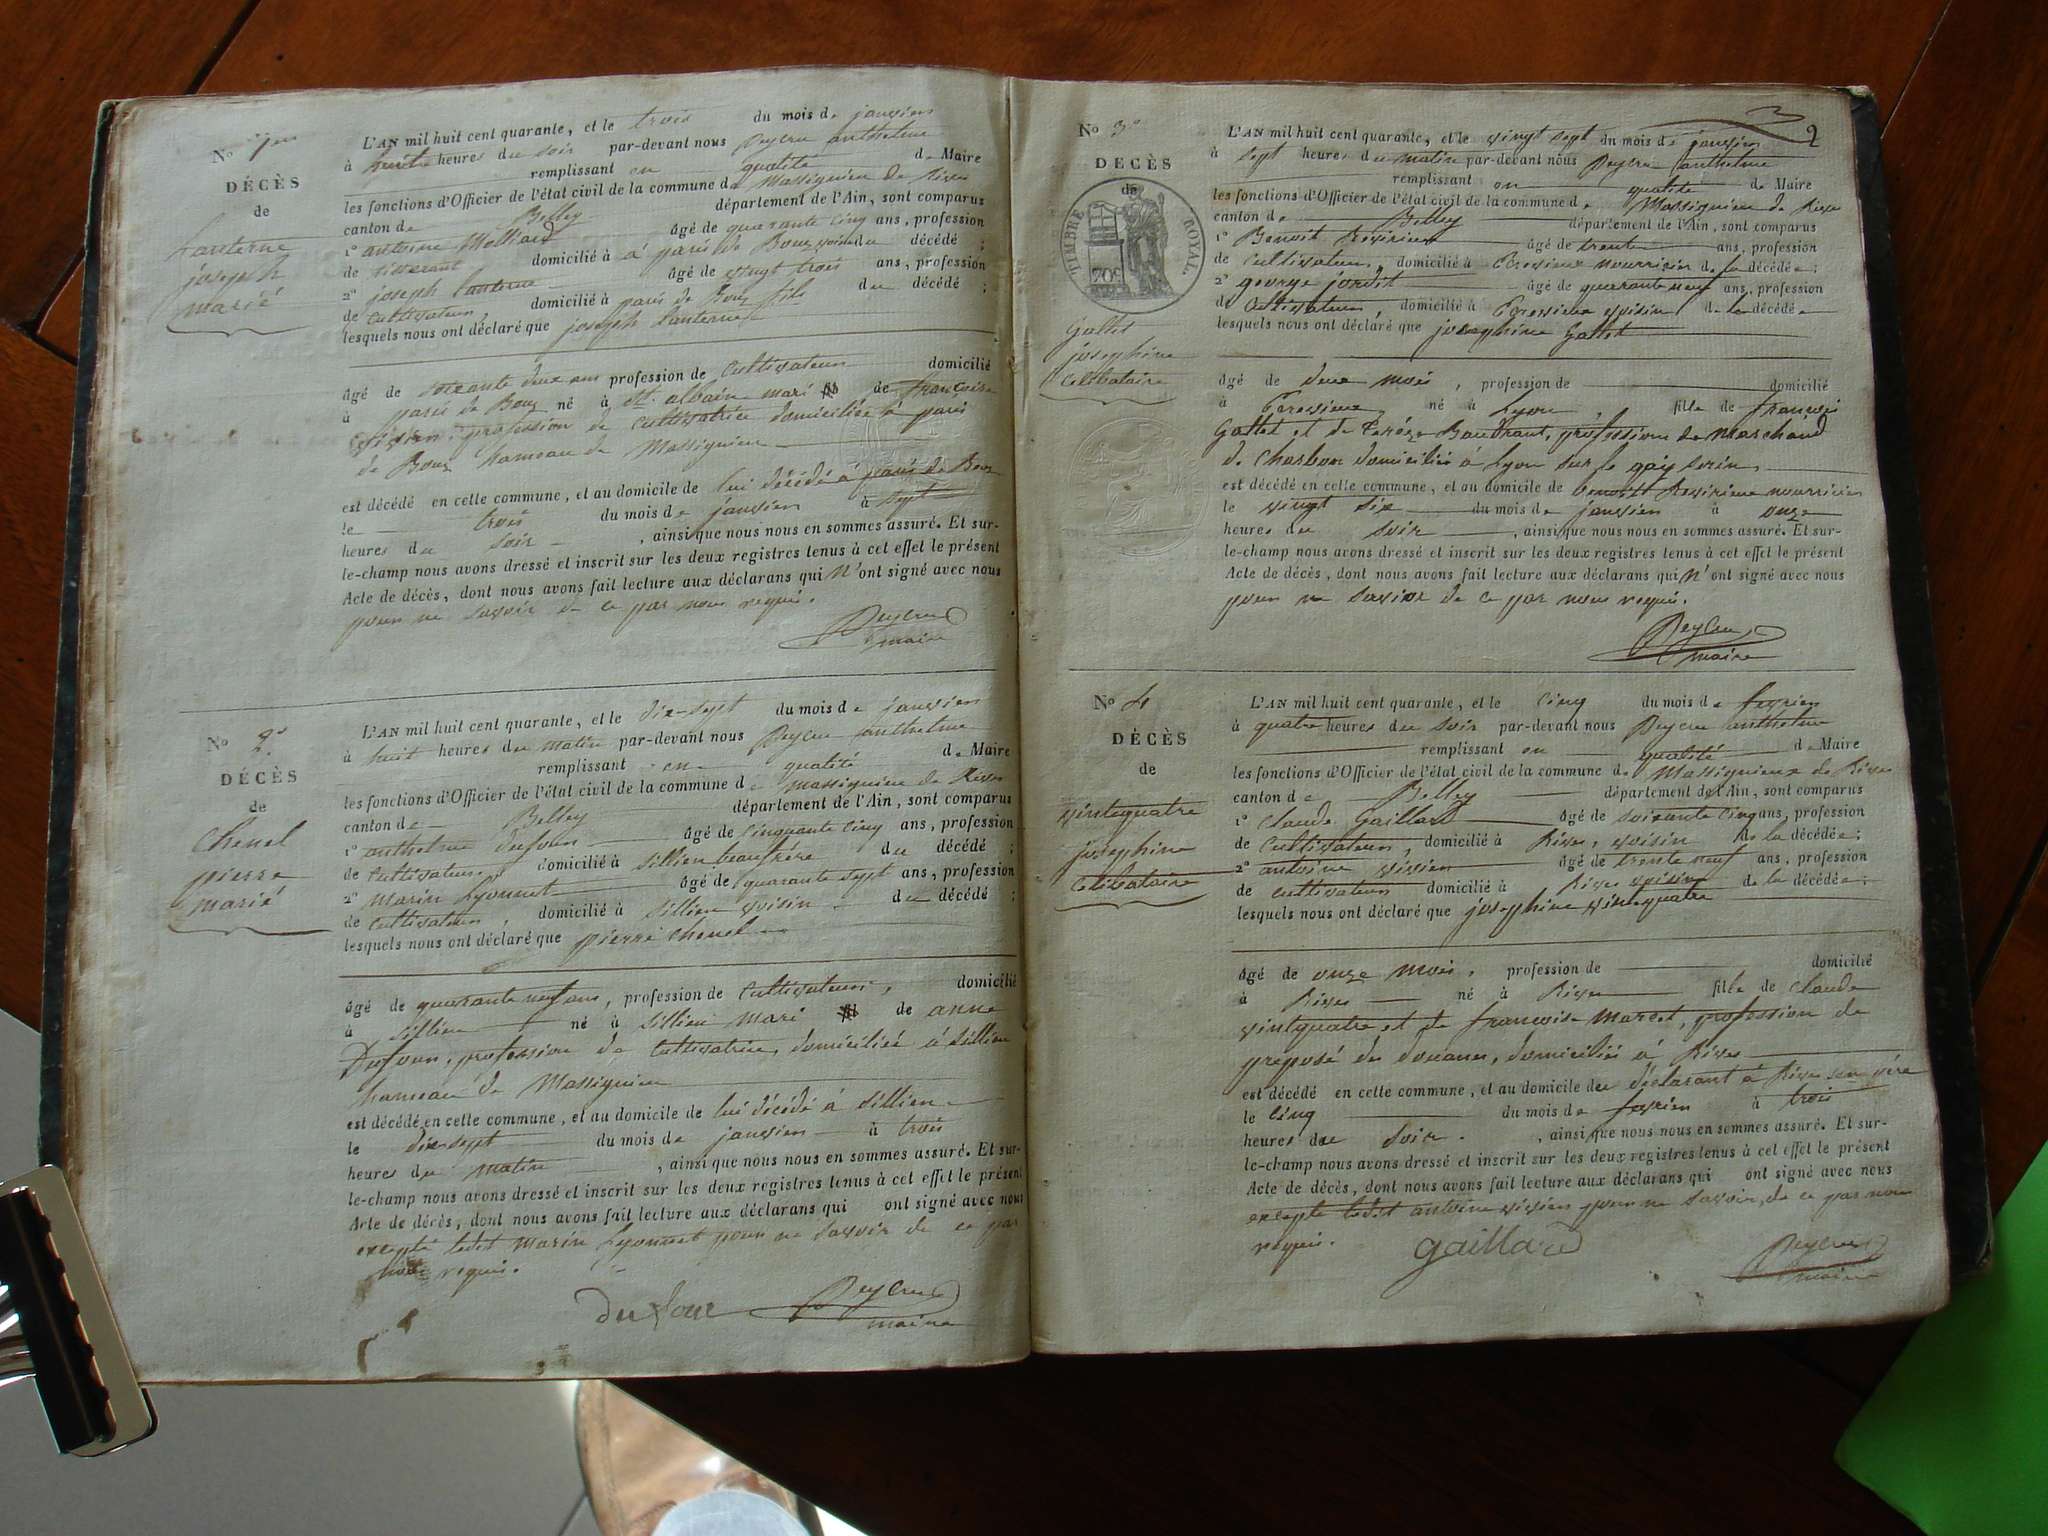 No 1er
DÉCÈS
de
Lanterne
joseph
marié
L'AN mil huit cent quarante, et le trois du mois de janvier
à huit heures du soir par-devant nous Peycru anthelme
remplissant en qualité de Maire
les fonctions d'Officier de l'état civil de la commune de Massignieu de Rives
canton de Belley département de l'Ain, sont comparus
1º antoine Molliard âgé de quarante cinq ans, profession
de tisserant domicilié à à paris de Bouz voisin du décédé;
2º joseph lanterne âgé de vingt trois ans, profession
de cultivateur, domicilié à paris de Bouz fils du décédé;
lesquels nous ont déclaré que joseph lanterne
âgé de soixante deux ans profession de cultivateur domicilié
à paris de Bouz né à St. albain mari de françoise
vivien, profession de cultivatrice domiciliée à paris
de Bouz hameau de Massignieu
est décédé en cette commune, et au domicile de lui décédé à paris de Bouz
le trois du mois de janvier à sept
heures du soir, ainsi que nous nous en sommes assuré. Et sur-
le-champ nous avons dressé et inscrit sur les deux registres tenus à cet effet le présent
Acte de décès, dont nous avons fait lecture aux déclarans qui n'ont signé avec nous
pour ne savoir de ce par nous requis.
Peycru
maire
No 2e
DÉCÈS
de
Chenel
pierre
marié
L'AN mil huit cent quarante, et le dix-sept du mois de janvier
à huit heures du matin par-devant nous Peycru anthelme
remplissant en qualité de Maire
les fonctions d'Officier de l'état civil de la commune de Massignieu de Rives
canton de Belley département de l'Ain, sont comparus
1º anthelme dufour âgé de cinquante cinq ans, profession
de cultivateur domicilié à Sillien beaufrère du décédé;
2º Marin Lyonnet âgé de quarante sept ans, profession
de cultivateur, domicilié à Sillien voisin du décédé;
lesquels nous ont déclaré que pierre Chenel
âgé de quarante neuf ans, profession de cultivateur, domicilié
à Sillien né à Sillien mari de anne
Dufour, profession de cultivatrice, domiciliée à Sillien
hameau de Massignieu
est décédé en cette commune, et au domicile de lui décédé à Sillien
le dix-sept du mois de janvier à trois
heures du matin, ainsi que nous nous en sommes assuré. Et sur-
le-champ nous avons dressé et inscrit sur les deux registres tenus à cet effet le présent
Acte de décès, dont nous avons fait lecture aux déclarans qui ont signé avec nous
excepté ledit Marin Lyonnet pour ne savoir de ce par
nous requis.
Dufour Peycru
maire
2
No 3e
DÉCÈS
de
TIMBRE ROYAL
70c
Gallet
josephine
Celibataire
L'AN mil huit cent quarante, et le vingt sept du mois de janvier
à sept heures du matin par-devant nous Peycru anthelme
remplissant en qualité de Maire
les fonctions d'Officier de l'état civil de la commune de Massignieu de Rives
canton de Belley département de l'Ain, sont comparus
1º Benoit âgé de trente ans, profession
de cultivateur, domicilié à nourricier de la décédée;
2º george jordit âgé de quarante neuf ans, profession
de cultivateur, domicilié à voisin de la décédée
lesquels nous ont déclaré que josephine Gallet
âgé de deux mois, profession de domicilié
à né à Lyon, fille de françois
Gallet et de Baudrant, profession de Marchand
de Charbon domiciliés à Lyon sur le qaiy serin,
est décédé en cette commune, et au domicile de benoitt nourricier
le vingt six du mois de janvier à onze
heures du soir, ainsi que nous nous en sommes assuré. Et sur-
le-champ nous avons dressé et inscrit sur les deux registres tenus à cet effet le présent
Acte de décès, dont nous avons fait lecture aux déclarans qui n'ont signé avec nous
pour ne savoir de ce par nous requis.
Peycru
maire
No 4
DÉCÈS
de
vintquatre
josephine
Celibataire
L'AN mil huit cent quarante, et le cinq du mois de fevrier
à quatre heures du soir par-devant nous Peycru anthelme
remplissant en qualité de Maire
les fonctions d'Officier de l'état civil de la commune de Massignieux de Rives
canton de Belley département de l'Ain, sont comparus
1º Claude Gaillard âgé de soixante cinq ans, profession
de cultivateur, domicilié à Rives, voisin de la décédée;
2º antoine vivien âgé de trente neuf ans, profession
de cultivateur domicilié à Rives voisin de la décédée;
lesquels nous ont déclaré que josephine vintquatre
âgé de onze mois, profession de domicilié
à Rives né à Rives fille de claude
vintquatre et de françoise Marcet, profession de
preposé des douanes, domiciliés à Rives
est décédé en cette commune, et au domicile du déclarant à Rives
le cinq du mois de fevrier à trois
heures du soir, ainsi que nous nous en sommes assuré. Et sur-
le-champ nous avons dressé et inscrit sur les deux registres tenus à cet effet le présent
Acte de décès, dont nous avons fait lecture aux déclarans qui ont signé avec nous
excepté ledit antoine vivien pour ne savoir, de ce par nous
requis. gaillard Peycru
maire